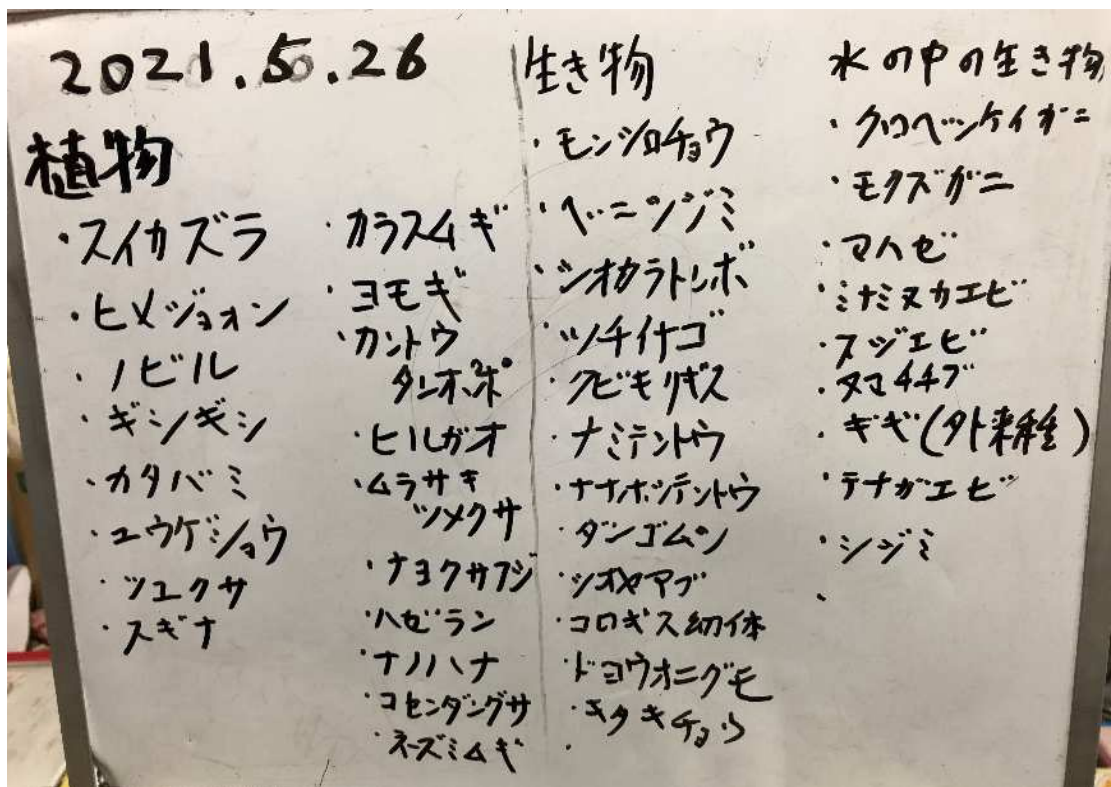 2021.5.26
植物
・スイカズラ
・ヒメジョオン
・ノビル
・ギシギシ
・カタバミ
・ユウゲショウ
・ツユクサ
・スギナ
・カラスムギ
・ヨモギ
・カントウ
タンポポ
・ヒルガオ
・ムラサキ
ツメクサ
・ナヨクサフジ
・ハゼラン
・ナノハナ
・コセンダングサ
・ネズミムギ
生き物
・モンシロチョウ
・ベニシジミ
・シオカラトンボ
・ツチイナゴ
・クビキリギス
・ナミテントウ
・ナナホシテントウ
・ダンゴムシ
・シオヤアブ
・コロギス幼体
・ドヨウオニグモ
・キタキチョウ
・
水の中の生き物
・クロベンケイガニ
・モクズガニ
・マハゼ
・ミナミヌカエビ
・スジエビ
・ヌマチチブ
・ギギ(外来種)
・テナガエビ
・シジミ
・